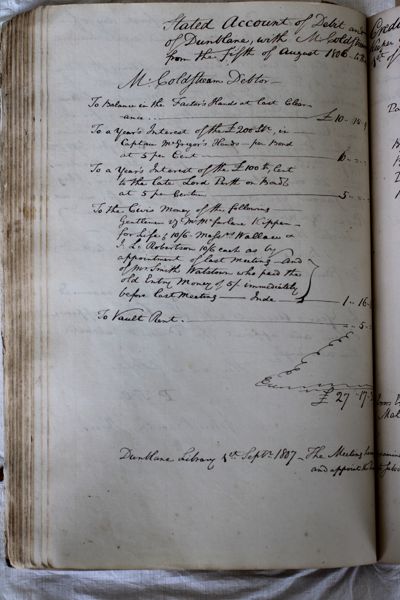 Stated Account of Debit and
of Dunblane, with Mr Coldstream
from the fifth of August 1806 to the
Mr Coldstream Debtor
To Balance in the Factor's Hands at last Clear
ance £ 10 - 18
To a Year's Interest of the £200 Str. in
Captain McGregor's Hands per Bond
at 5 per Cent
To a Year's Interest of the £100 Str, lent
to the late Lord Perth on Bond
at 5 per Centum 5 - -
To the Civis Money of the following
Gentlemen Mr McFarlane Kippen
for Life 10/6 Messrs Wallace &
J. Robertson 10/6 each as by
appointment of last Meeting - And
of Mr Smith who paid the
old Entry Money of 5/ immediately
before last Meeting Inde 1 - 16
To Vault Rent. - 5 -
£ 27 - 17
Dunblane Library Septr. 1807 - The Meeting
and appoint the
Credit